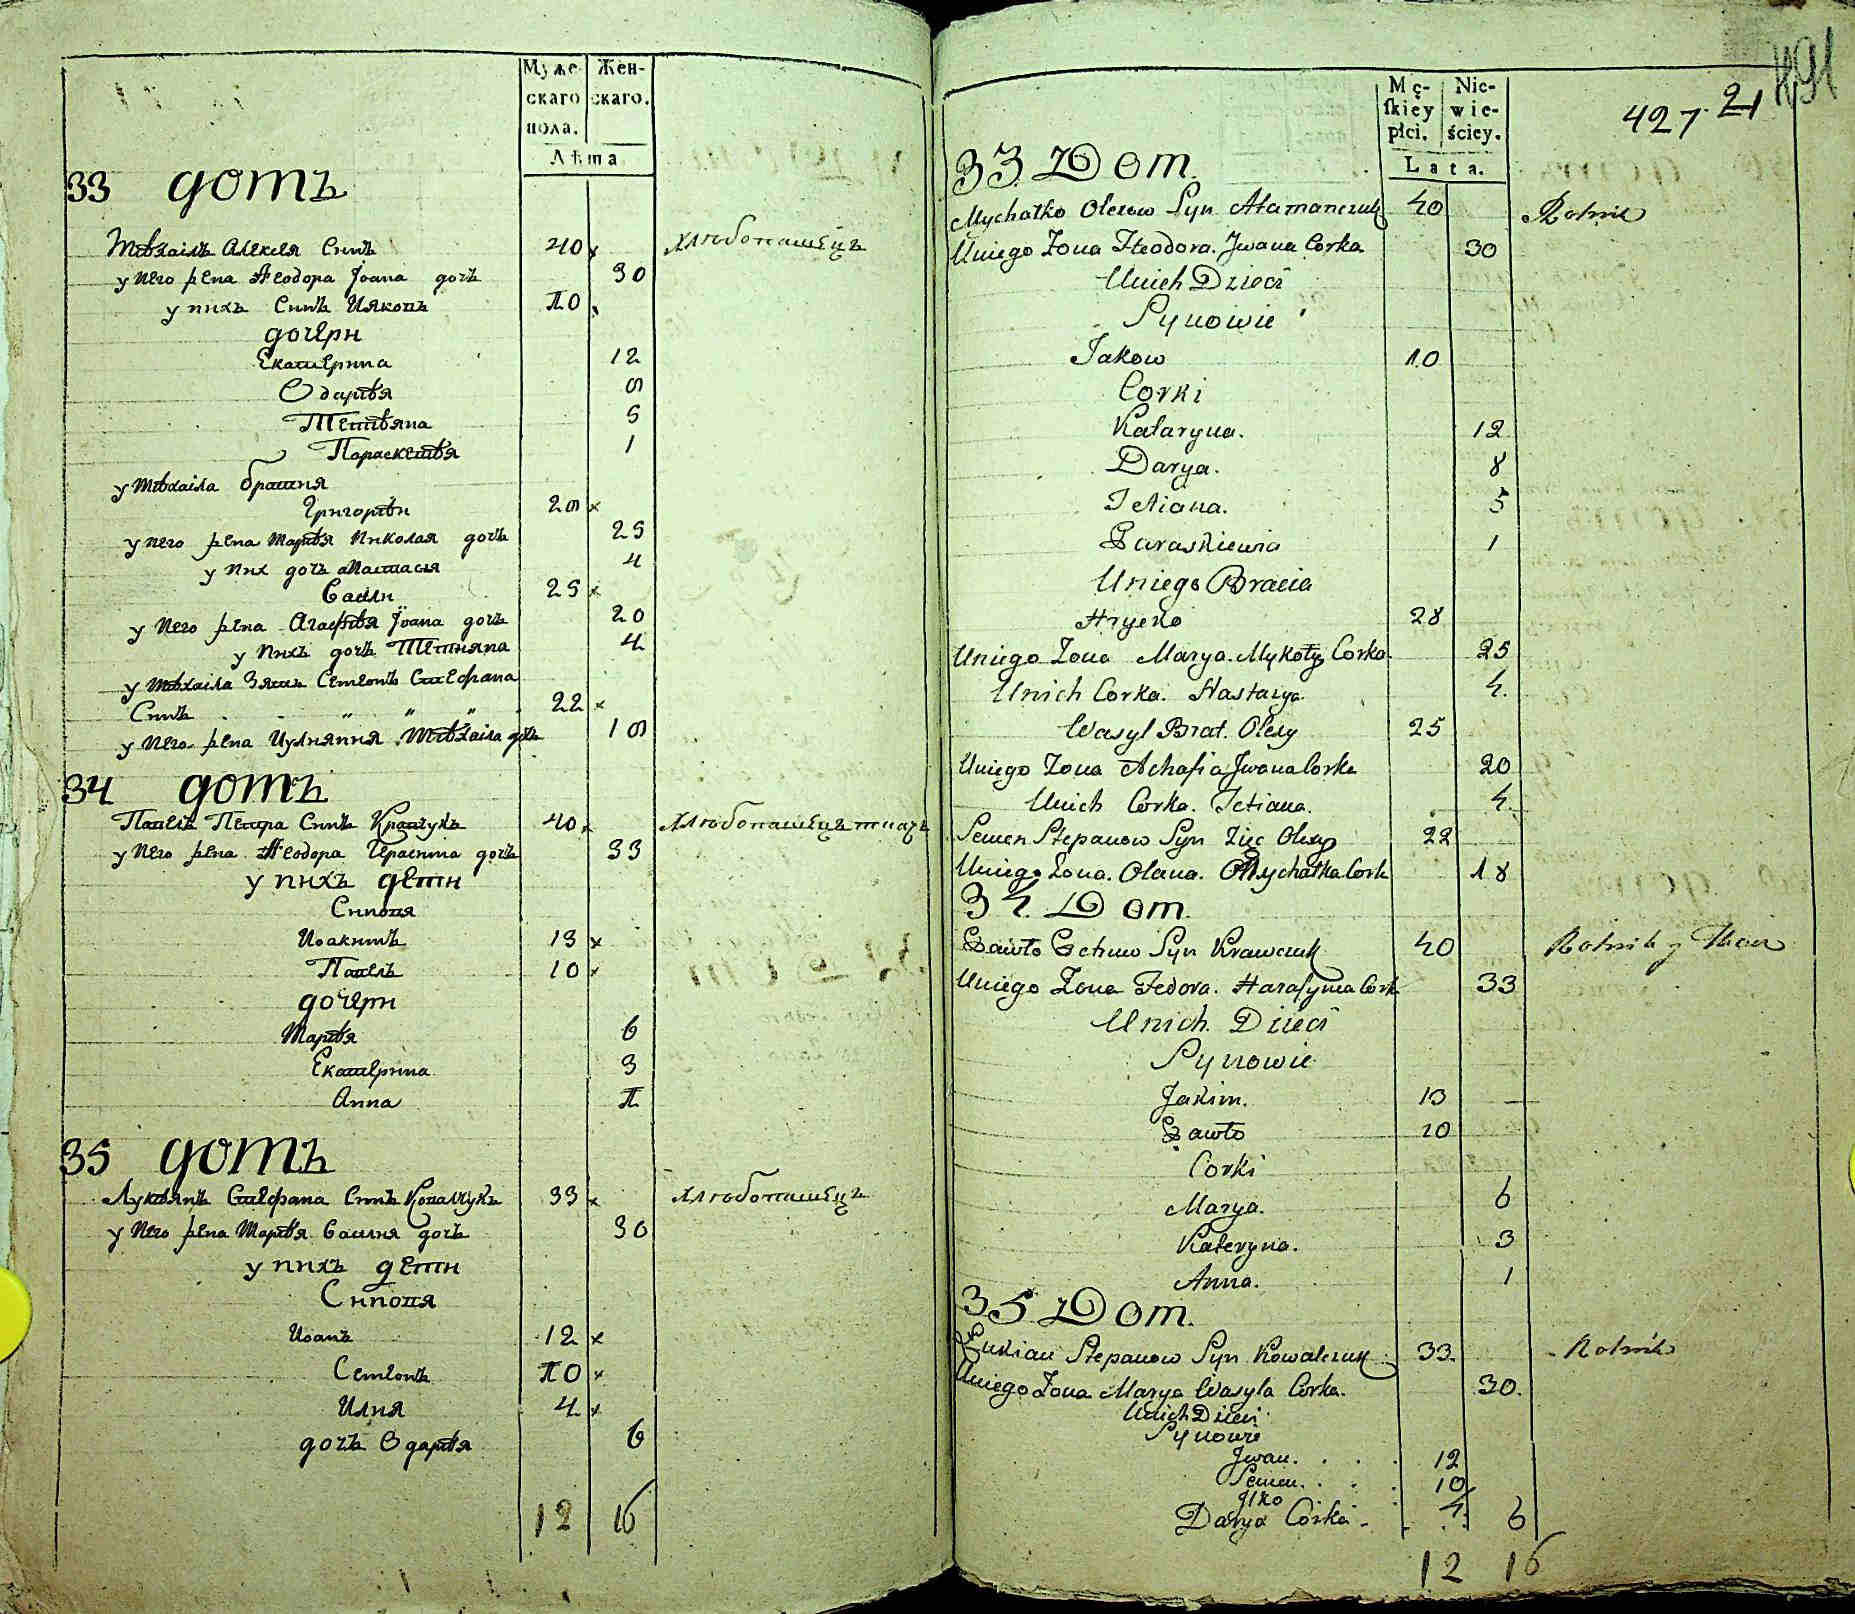 Муже- Жен-
скаго скаго.
пола.
Лѣта
33 домъ
Михаилъ Алексея Синъ 40 х Хлѣбопашецъ
у него жена Феодора Іоана дочъ 30
у нихъ Синъ Ияковъ 10
дочери
Екатерина 12
Одария 8
Тетияна 5
Параскевия 1
у Михаила братия
Григорий 28 х
у него жена Мария Николая дочъ 25
у них дочъ Анастасия 4
Васили 25 х
у него жена Агафия Іоана дочъ 20
у нихъ дочъ Тетияна 4
у Михаила Зять Семіонъ Стефана
Синъ 22 х
у него жена Иулияния Михаила дочъ 18
34 домъ
Павелъ Петра Синъ Кравчукъ 40 х Хлѣбопашецъ ткачъ
у него жена Феодора Герасима дочъ 33
у нихъ дети
Синовя
Иоакимъ 13 х
Павелъ 10 х
дочери
Мария 6
Екатерина 3
Анна 1
35 домъ
Лукиянъ Стефана Синъ Ковалчукъ 33 х Хлѣбопашецъ
у него жена Мария Василя дочъ 30
у нихъ дети
Синовя
Иоанъ 12 х
Семіонъ 10 х
Илия 4 х
дочъ Одария 6
12 16
Mę- Nie-
skiey wie-
płci. ściey.
Lata.
427. 21
491
33 Dom.
Mychałko Olexow Syn Atamanczuk 40 Rolnik
Uniego Zona Fteodora. Jwana Corka 30
Unich Dzieci
Synowie
Jakow 10
Corki
Kataryna. 12
Darya. 8
Tetiana. 5
Paraskiewia 1
Uniego Bracia
Hryćko 28
Uniego Zona Marya. Mykoły Corka 25
Unich Corka. Nastazya 4.
Wasyl Brat. Olexy 25
Uniego Zona Ahafia Jwana Corka 20
Unich Corka. Tetiana. 4.
Semen Stepanow Syn Zięc Olexy 22
Uniego Zona. Olana. Mychałka Cork 18
34. Dom.
Pawło Petrow Syn Krawczuk 40 Rolnik y Tkacz
Uniego Zona Fedora. Harasyma Cork 33
Unich. Dzieci
Synowie
Jakim. 13
Pawło 10
Corki
Marya. 6
Kateryna. 3
Anna. 1
35 Dom.
Łukian Stepanow Syn Kowalczuk 33. Rolnik
Uniego Zona Marya Wasyla Corka. 30.
Unich Dzieci
Synowie
Jwan. 12
Semen. 10
Jlko 4.
Darya Corka 6
12 16